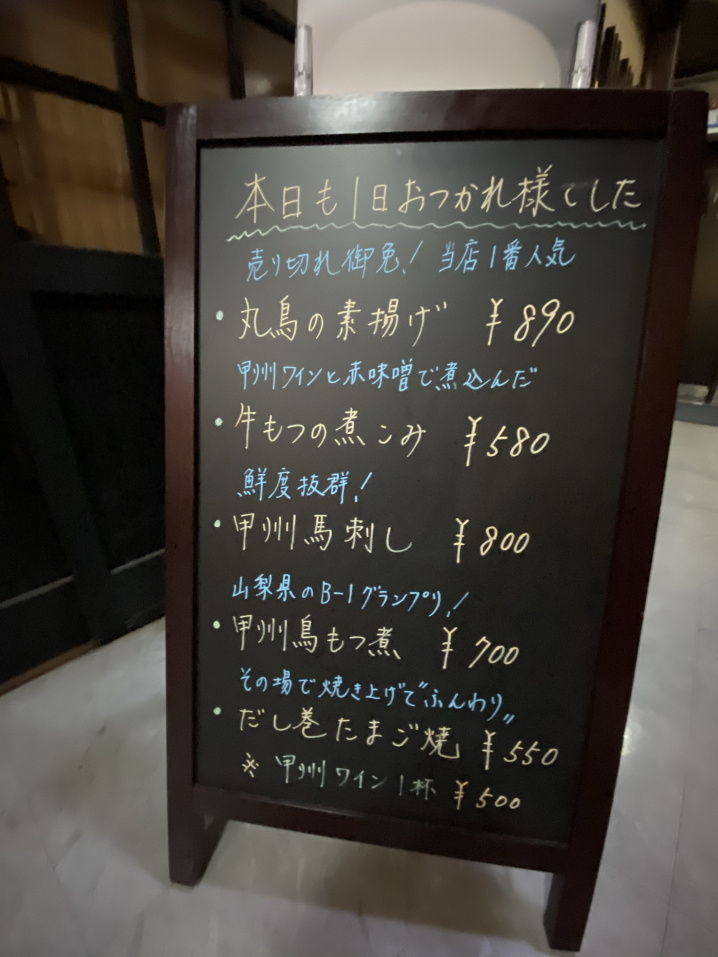 本日も1日おつかれ様でした
売り切れ御免! 当店1番人気
・丸鳥の素揚げ ¥890
甲州ワインと赤味噌で煮込んだ
・牛もつの煮こみ ¥580
鮮度抜群!
・甲州馬刺し ¥800
山梨県のB-1グランプリ!
・甲州鳥もつ煮 ¥700
その場で焼き上げて"ふんわり"
・だし巻たまご焼 ¥550
※ 甲州ワイン1杯 ¥500